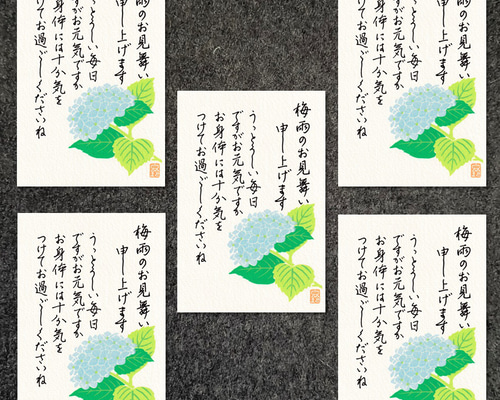 のお見舞い
し上げます
とうしい毎日
がお元気ですか
身体には十分気を
てお過ごしくださいね
梅雨のお見舞い
申し上げます
うっとうしい毎日
ですがお元気ですか
お身体には十分気を
つけてお過ごしくださいね
のお見舞い
し上げます
とうしい毎日
がお元気ですか
身体には十分気を
てお過ごしくださいね
梅雨のお見舞い
申し上げます
うっとうしい毎日
ですがお元気ですか
お身体には十分気を
つけてお過ごしくださいね
梅雨のお見舞い
申し上げます
うっとうしい毎日
ですがお元気ですか
お身体には十分気を
つけてお過ごしくださいね